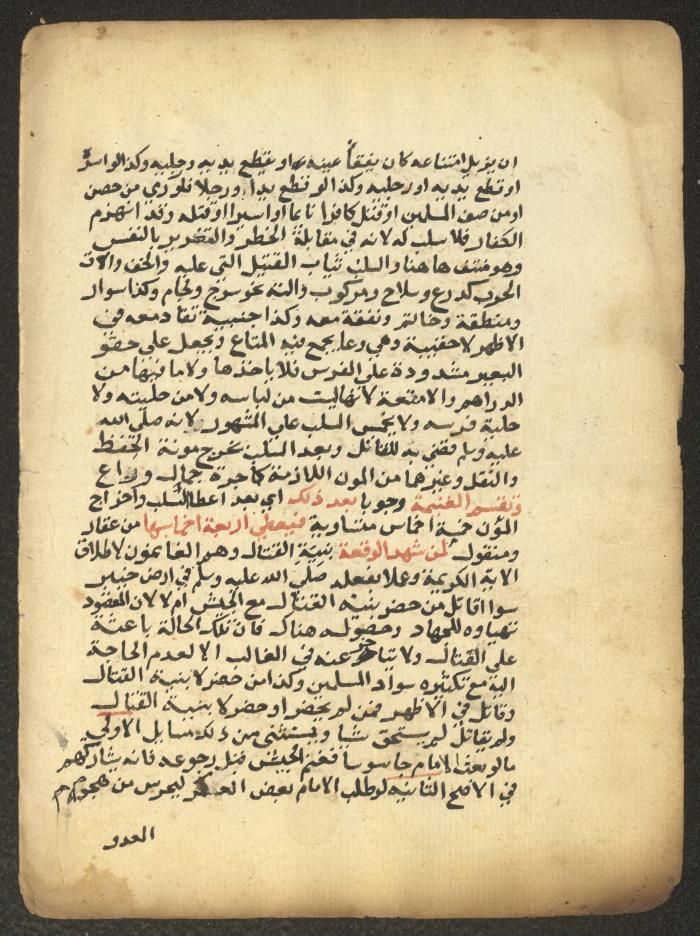 ان يزيل امتناعه كان يفقأ عينيه او يقطع يديه ورجليه وكذا لو اسره
او قطع يديه او رجليه وكذا لو قطع يدا ورجلا فلو رمي من حصن
او من صف المسلمين او قتل كافرا نايما او اسيرا او قتله وقد انهزم
الكفار فلا سلب له لانه في مقابلة الخطر والتغرير بالنفس
وهو منتف هاهنا والسلب ثياب القتيل التي عليه والخف والات
الحرب كدرع وسلاح ومركوب والته نحو سرج ولجام وكذا سوار
ومنطقة وخاتم ونفقة معه وكذا جنيبة تقاد معه في
الاظهر لا حقيبة وهي وعا يجمع فيه المتاع ويجعل علي حقو
البعير مشدودة علي الفرس فلا ياخذها ولا ما فيها من
الدراهم والامتعة لانها ليست من لباسه ولا من حليته ولا
حلية فرسه ولا يخمس السلب علي المشهور لانه صلي الله
عليه وسلم قضي به للقاتل وبعد السلب تخرج مونة الحفظ
والنقل وغيرها من المون اللازمة كاجرة جمال وراع
وتقسم الغنيمة وجوبا بعد ذلك اي بعد اعطا السلب واخراج
المؤن خمسة اخماس متساوية فيعطي اربعة اخماسها من عقار
ومنقول لمن شهد الوقعة بنية القتال وهم الغانمون لاطلاق
الاية الكريمة وعملا بفعله صلي الله عليه وسلم في ارض خيبر
سوا اقاتل من حضر بنية القتال مع الجيش ام لا لان المقصود
تهياوه للجهاد وحضوله هناك فان تلك الحالة باعثة
علي القتال ولا يتاخر عنه في الغالب الا لعدم الحاجة
اليه مع تكثيره سواد المسلمين وكذا من حضر لا بنية القتال
وقاتل في الاظهر فمن لم يحضر او حضر لا بنية القتال
ولم يقاتل لم يستحق شيا ويستثني من ذلك مسايل الاولي
ما لو بعث الامام جاسوسا فغنم الجيش قبل رجوعه فانه يشاركهم
في الاصح الثانيه لو طلب الامام بعض العسكر ليحرس من هجوم
العدو